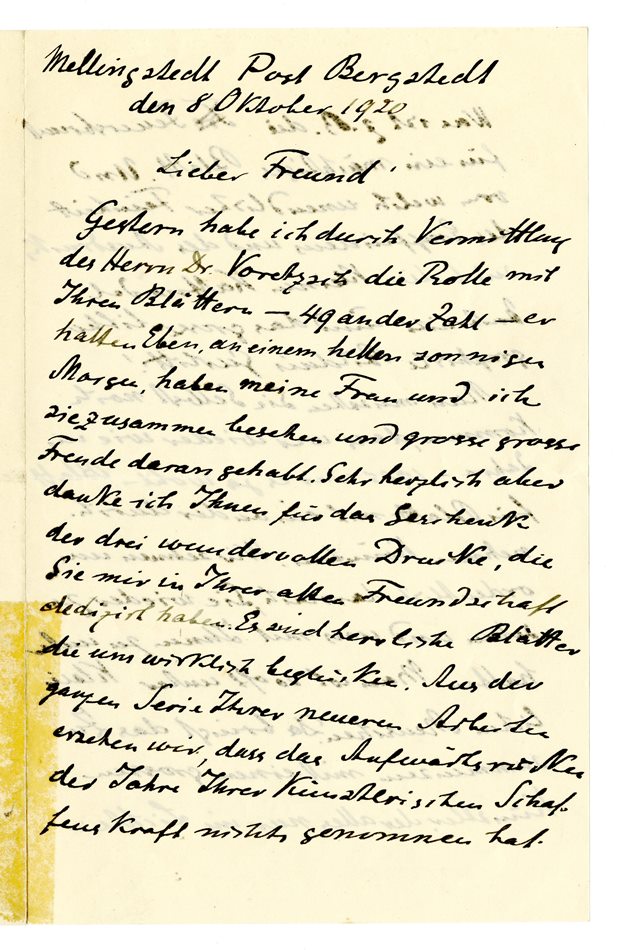 Mellingstedt Post Bergstedt
den 8 Oktober 1920
Lieber Freund'
Gestern habe ich durch Vermittlung
des Herrn Dr. Voretzsch die Rolle mit
Ihren Blättern – 49 an der Zahl – er
halten Eben, an einem hellen sonnigen
Morgen, haben meine Frau und ich
sie zusammen besehen und grosse grosse
Freude daran gehabt. Sehr herzlich aber
danke ich Ihnen für das Geschenk
der drei wundervollen Drucke, die
Sie mir in Ihrer alten Freundschaft
dedizirt haben. Es sind herrliche Blätter
die uns wirklich beglücken. Aus der
ganzen Serie Ihrer neueren Arbeiten
ersehen wir, dass das Aufwärtsrücken
der Jahre Ihrer Künstlerischen Schaf-
fens Kraft nichts genommen hat.